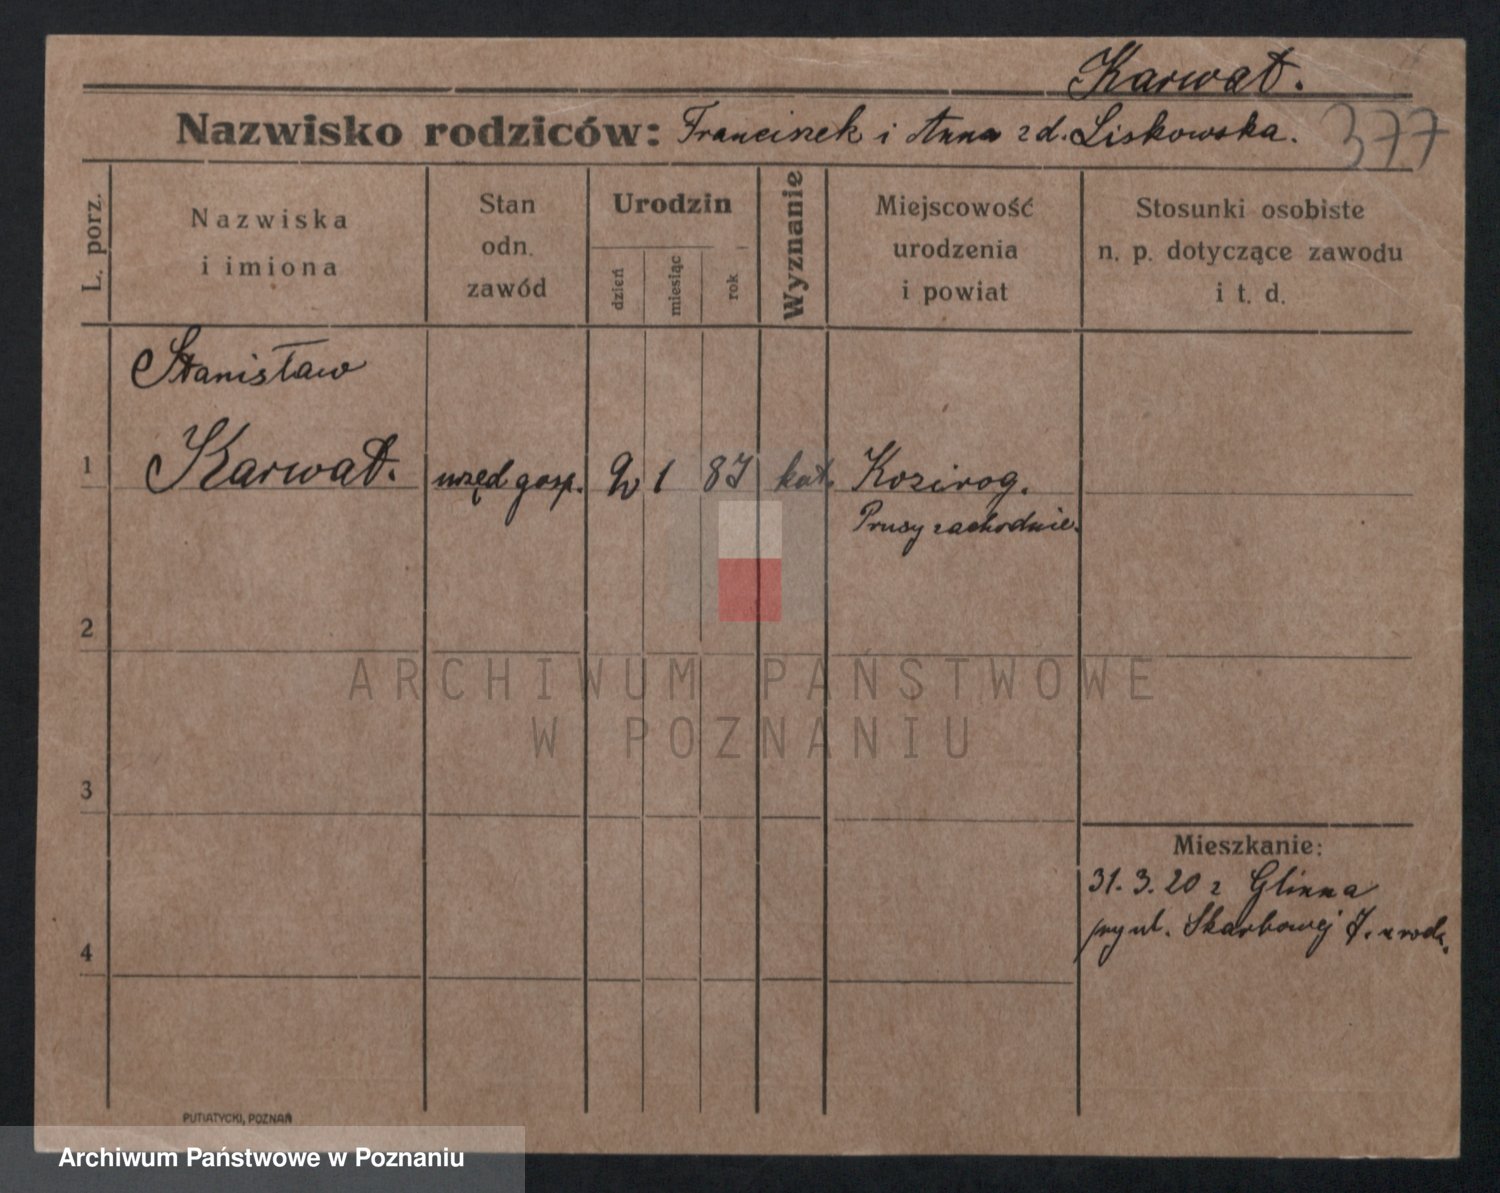 Karwat.
Nazwisko rodziców: Franciszek i Anna z d. Liskowska.
377
L. porz.
Nazwiska
i imiona
Stan
odn.
zawód
Urodzin
dzień
miesiąc
rok
Wyznanie
Miejscowość
urodzenia
i powiat
Stosunki osobiste
n. p. dotyczące zawodu
i t. d.
Stanisław
1 Karwat. urzęd gosp. 2 1 87 kat. Kozirog.
Prusy zachodnie.
2
3
4
Mieszkanie:
31. 3. 20 z Glinna
przy ul. Skarbowej 7. u rodz.
PUTIATYCKI, POZNAŃ
ARCHIWUM PAŃSTWOWE
W POZNANIU
Archiwum Państwowe w Poznaniu